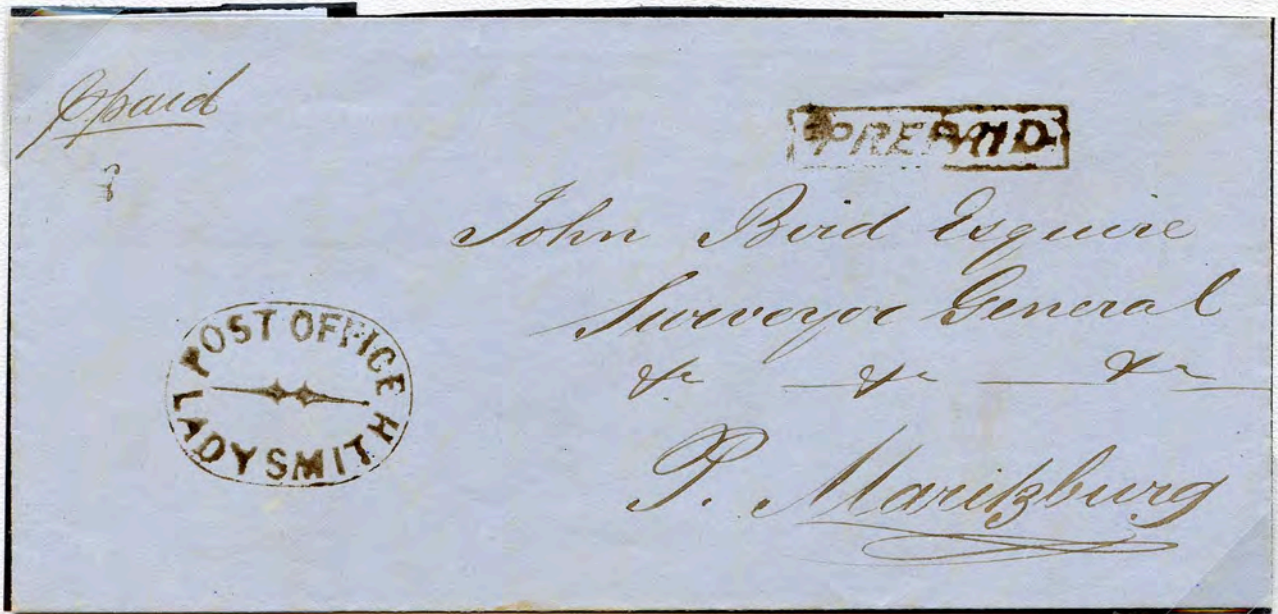 Ppaid
PREPAID
John Bird Esquire
Surveyor General
&c — &c — &c
P. Maritzburg
POST OFFICE
LADYSMITH